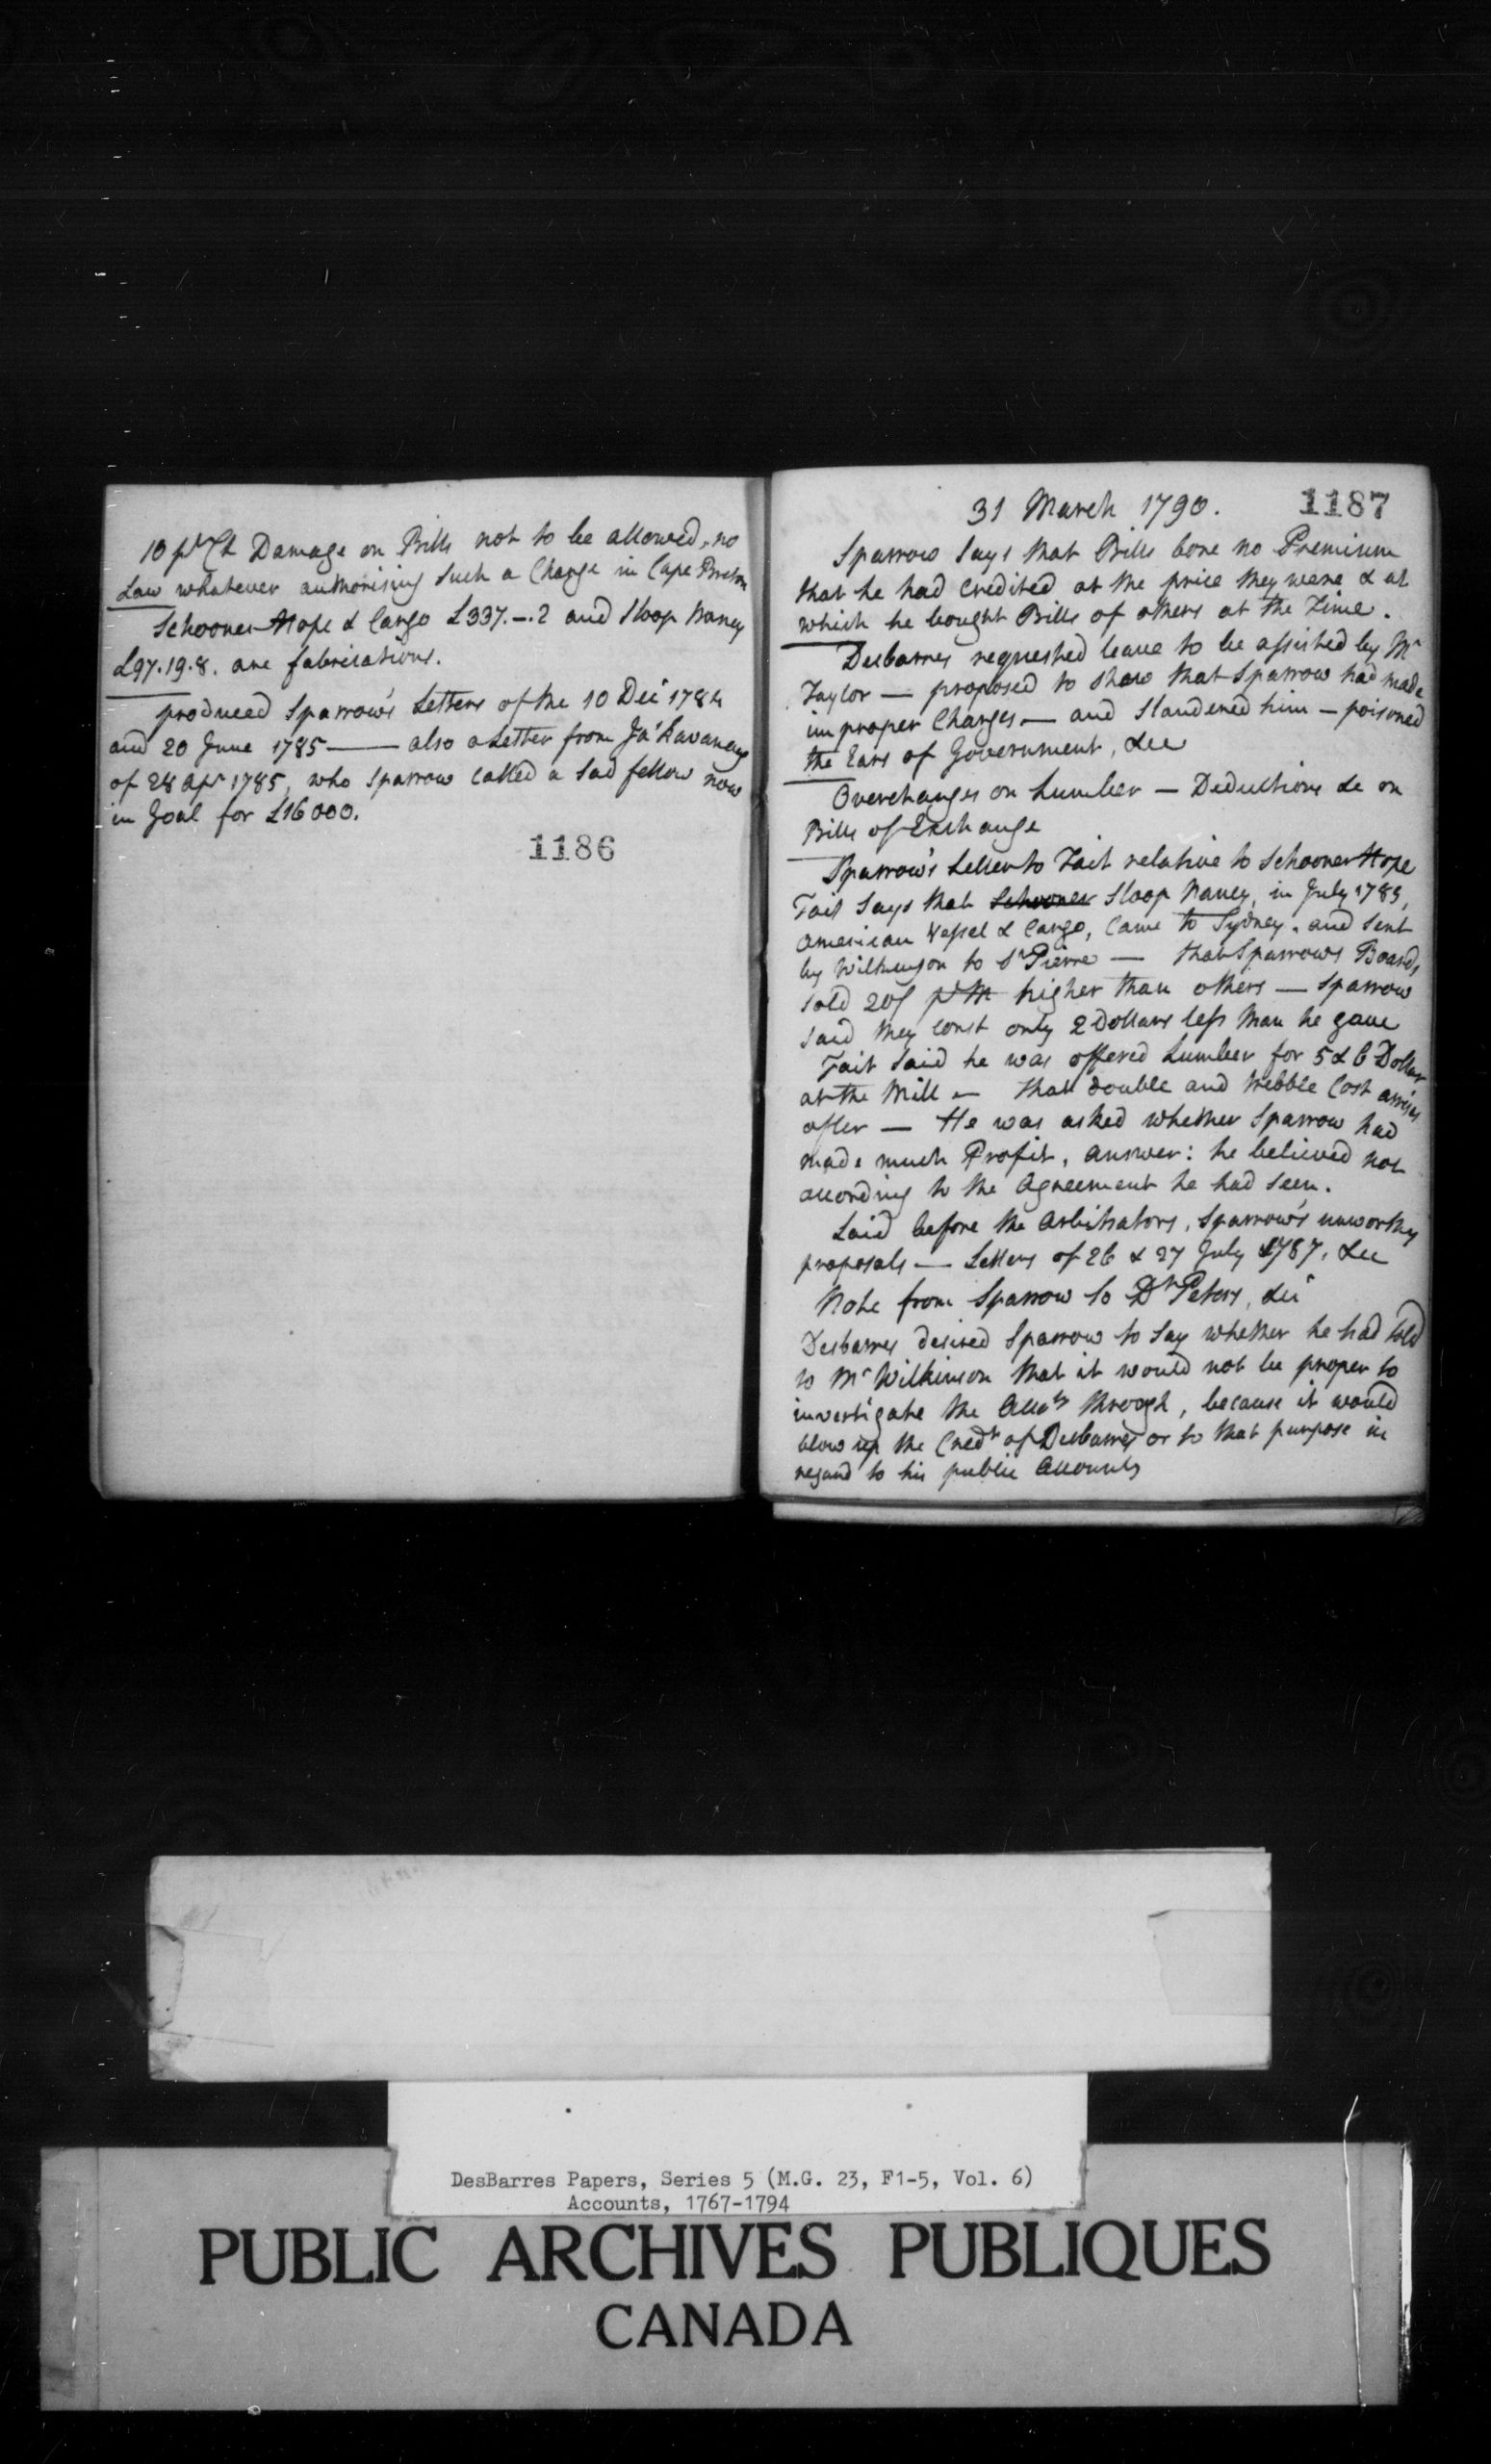 10 p.r Ct Damage on Bills not to be allowed, no
Law whatever authorising such a Charge in Cape Breton
Schooner Hope & Cargo £337.-.2 and Sloop Nancy
£97.19.8. are fabrications.
produced Sparrow's Letters of the 10 Dec 1784
and 20 June 1785 — also a Letter from Ja.s Kavanagh
of 28 Apr 1785, who Sparrow called a sad fellow now
in Goal for £16000.
1186
31 March 1790. 1187
Sparrow says that Bills bore no Premium
that he had credited at the price they were & at
which he bought Bills of others at the Time.
Desbarres requested leave to be assisted by Mr
Taylor — proposed to shew that Sparrow had made
improper Charges — and Slandered him — poisoned
the Ears of Government, &c
Overcharges on Lumber — Deductions &c on
Bills of Exchange
Sparrow's Letter to Tait relative to Schooner Hope
Tait Says that Schooner Sloop Nancy, in July 1785,
American Vessel & Cargo, came to Sydney, and sent
by Wilkinson to St Pierre — that Sparrows Boards
sold 20/ pr M higher than others — Sparrow
said they const only 2 Dollars less than he gave
Tait said he was offered Lumber for 5 & 6 Dollar
at the Mill — that double and trebble Cost arises
after — He was asked whether Sparrow had
made much Profit, answer: he believed not
according to the Agreement he had seen.
Laid before the Arbitrators, Sparrow's unworthy
proposals — Letters of 26 & 27 July 1787, &c
Note from Sparrow to Dr Peters, &c
Desbarres desired Sparrow to say whether he had told
to Mr Wilkinson that it would not be proper to
investigate the Accots through, because it would
blow up the Credt of Desbarres or to that purpose in
regard to his public Accounts
DesBarres Papers, Series 5 (M.G. 23, F1-5, Vol. 6)
Accounts, 1767-1794
PUBLIC ARCHIVES PUBLIQUES
CANADA